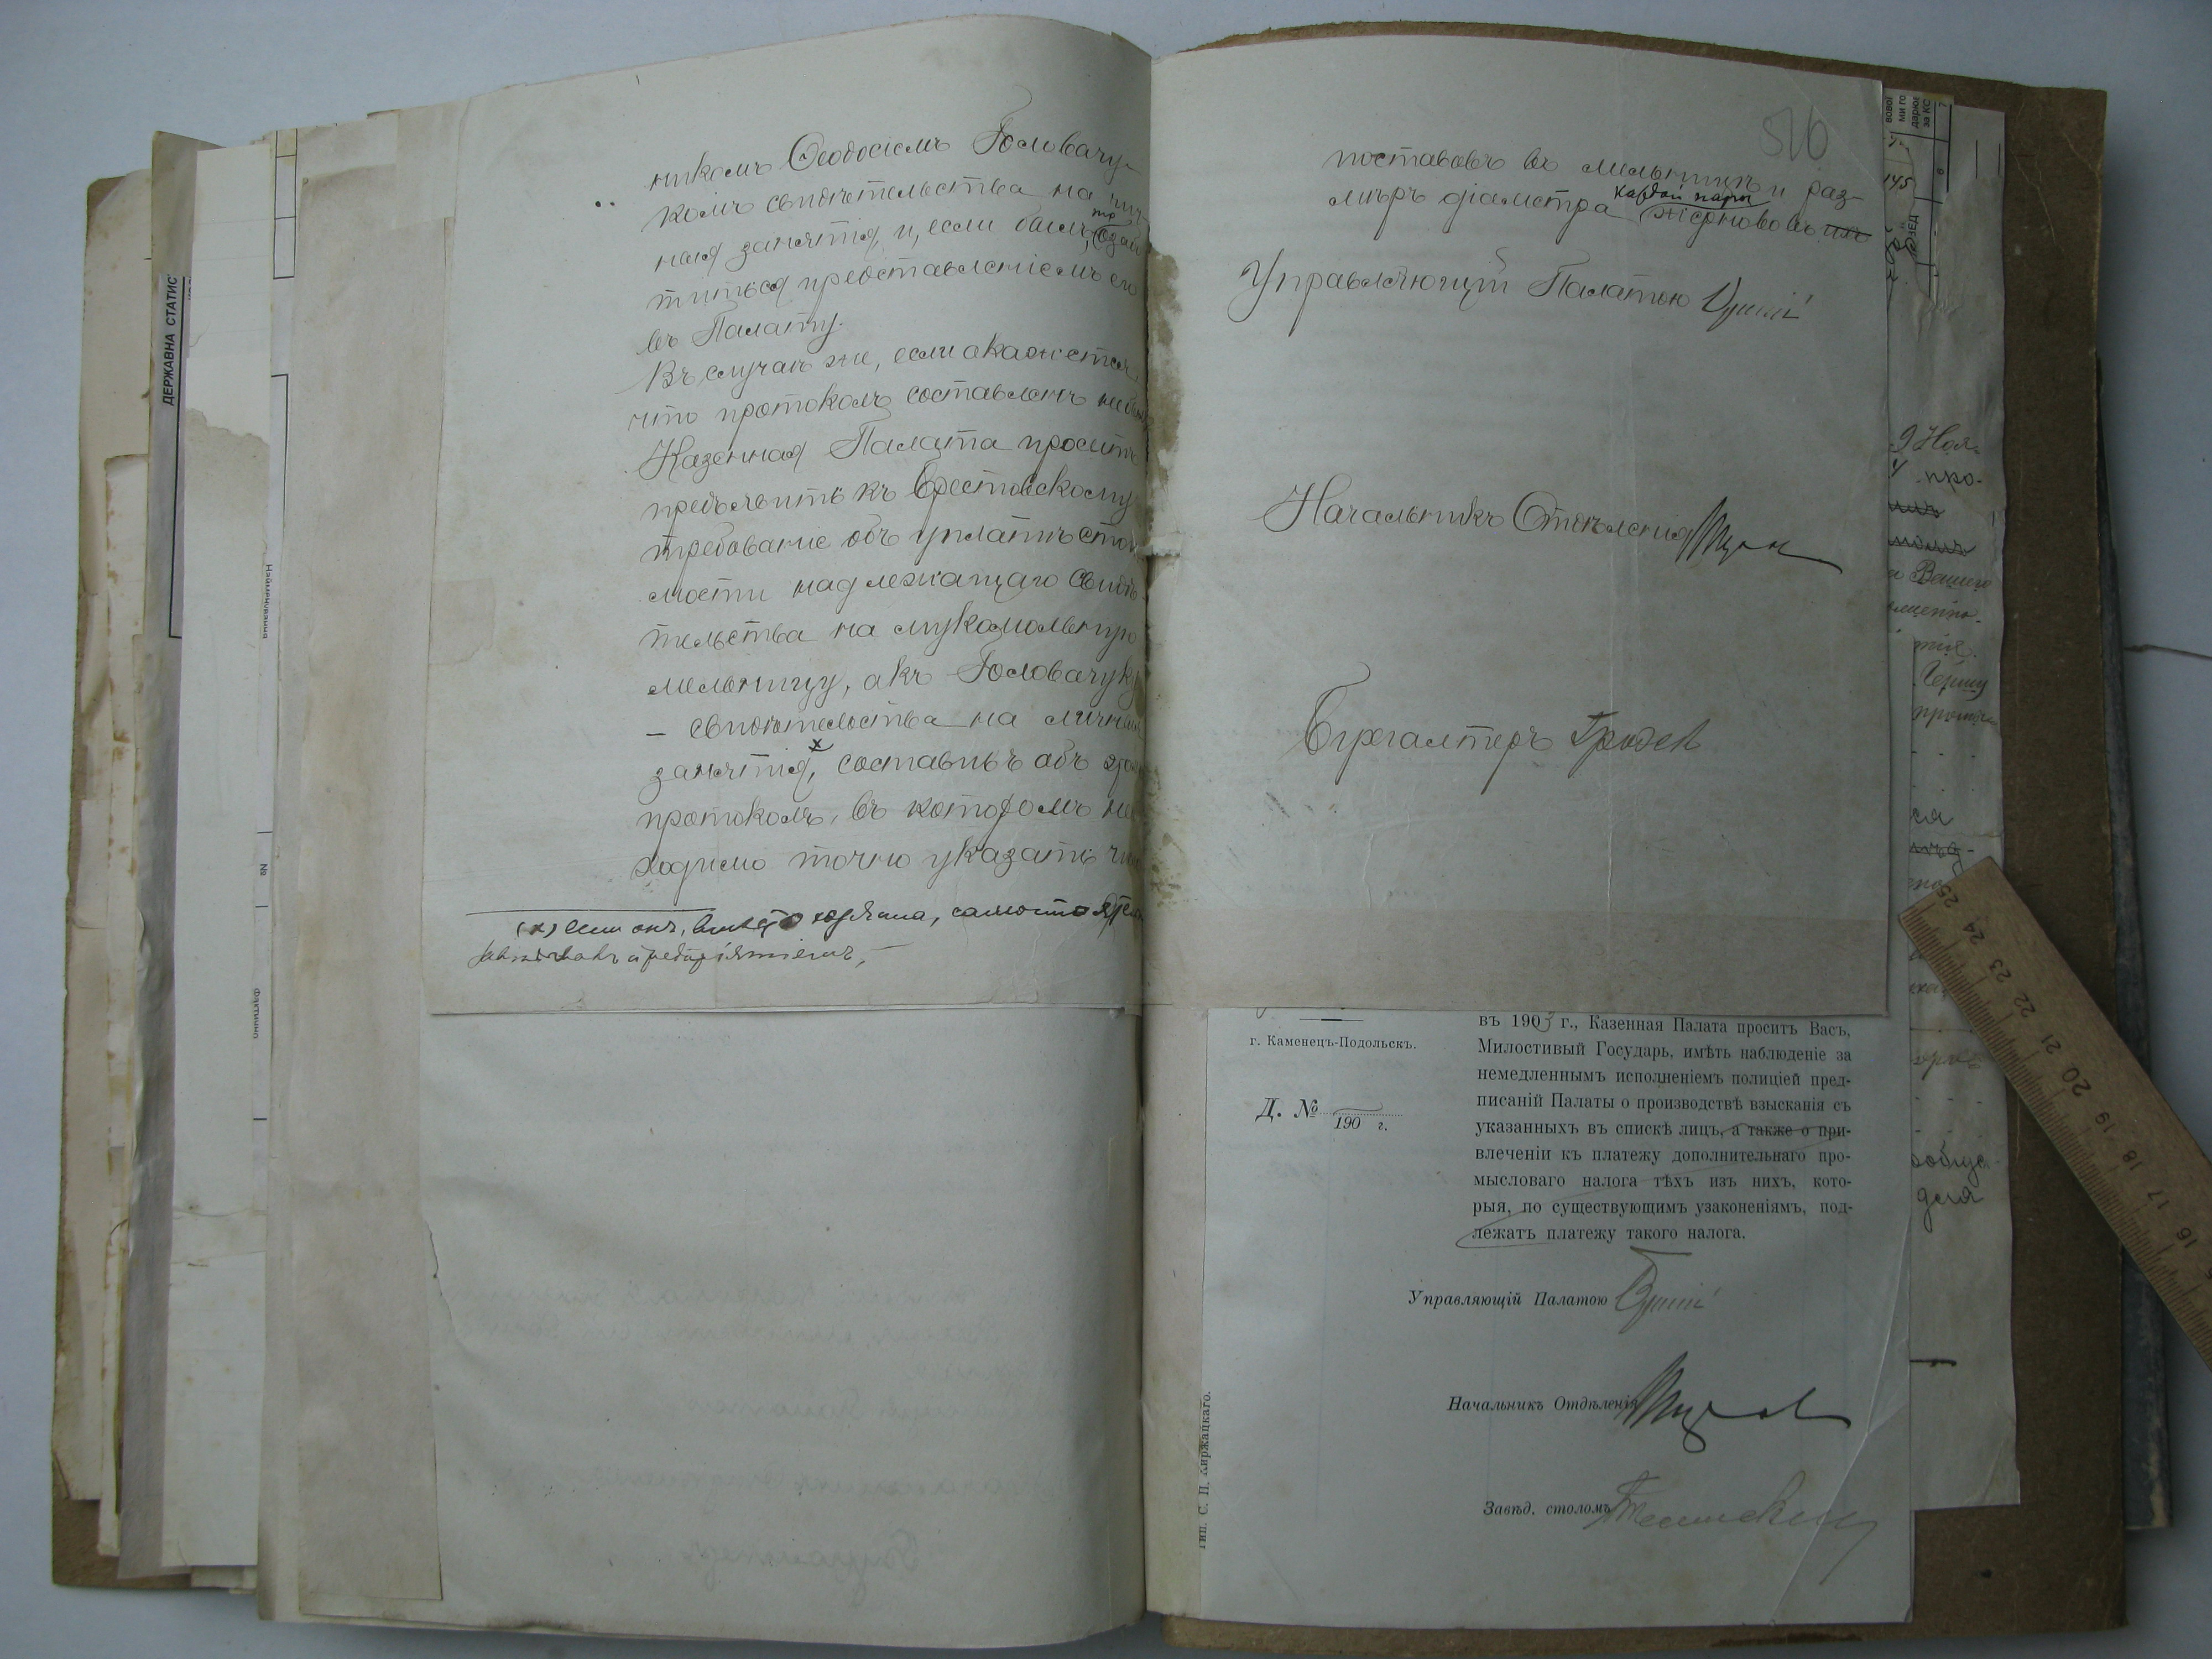 никомъ Ѳеодосіемъ Головачу-
комъ свидѣтельства на лич-
ныя занятія, и, если былъ,
титься представленіемъ его
въ Палату.
Въ случаѣ же, если окажется,
что протоколъ составленъ не былъ
Казенная Палата проситъ
предъявить къ Брестовскому
требованіе объ уплатѣ стои-
мости надлежащаго свидѣ-
тельства на мукомольную
мельницу, а къ Головачуку
– свидѣтельства на личныя
занятія, x составивъ объ этомъ
протоколъ, въ которомъ не
ходимо точно указать
(x) если онъ, вмѣсто хозяина, самостоятель
предпріятіемъ,
516
поставовъ въ мельницѣ и раз-
мѣръ діаметра каждой пары жернововъ ихъ
Управляющій Палатою
Начальникъ Отдѣленія
Бухгалтеръ
въ 1903 г., Казенная Палата проситъ Васъ,
Милостивый Государь, имѣть наблюденіе за
немедленнымъ исполненіемъ полиціей пред-
писаній Палаты о производствѣ взысканія съ
указанныхъ въ спискѣ лицъ, а также о при-
влеченіи къ платежу дополнительнаго про-
мысловаго налога тѣхъ изъ нихъ, кото-
рыя, по существующимъ узаконеніямъ, под-
лежатъ платежу такого налога.
г. Каменецъ-Подольскъ.
Д. №
190 г.
Управляющій Палатою
Начальникъ Отдѣленія
Завѣд. столомъ
Тип. С. П. Киржацкаго.
ДЕРЖАВНА СТАТИС
Найменування
№
Фактично
вової
ми го
дарюв
за КС
7
145
9 Ноя-
про-
Вашего
для
25 24 23 22 21 20 19 18 17 16